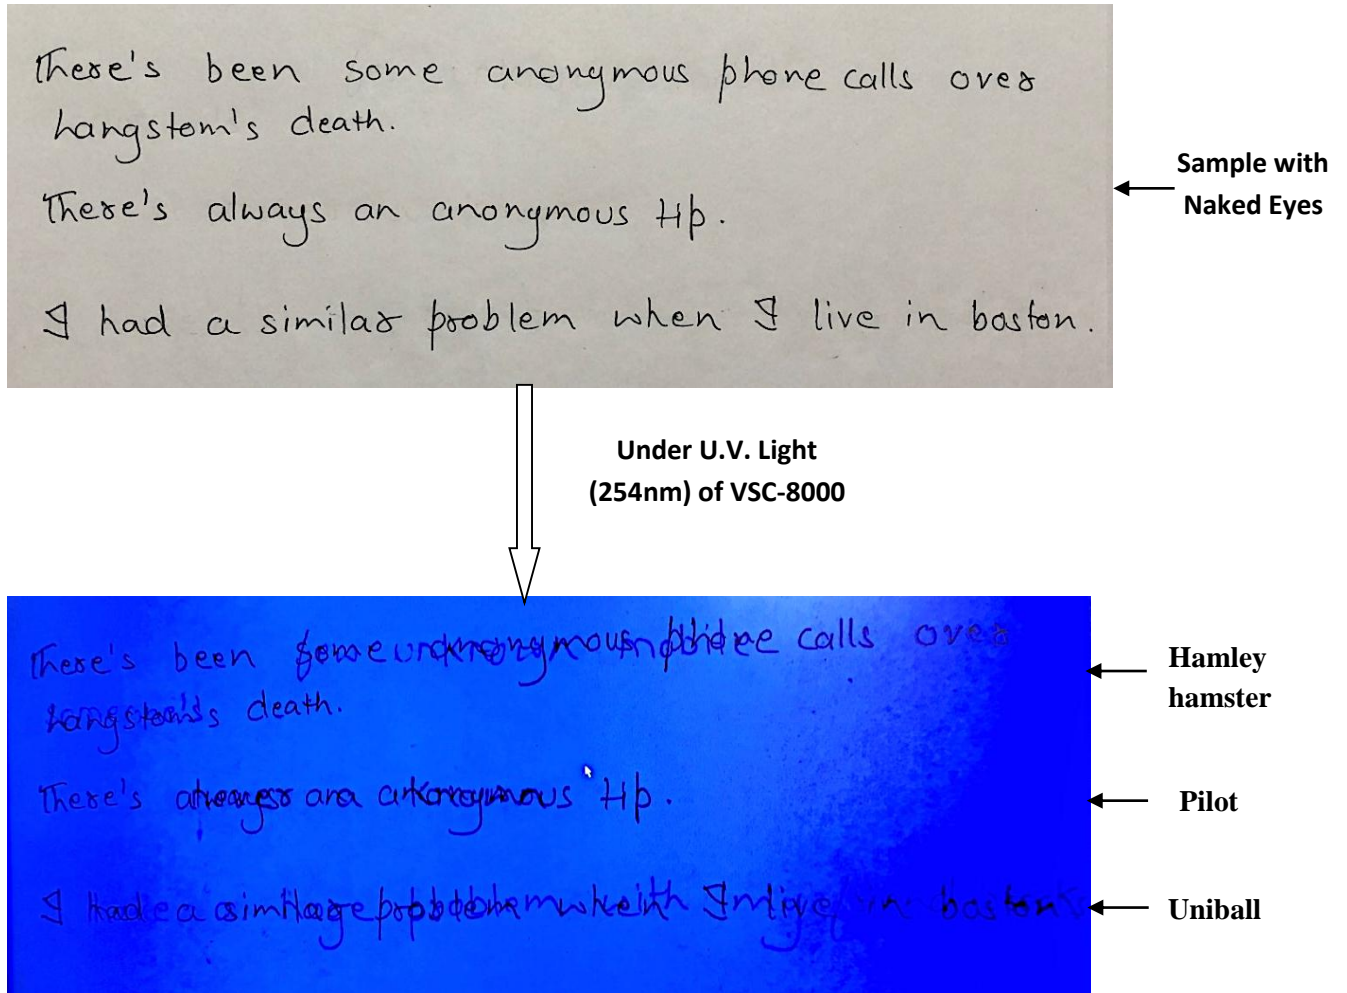 There's been some anonymous phone calls over
hangstom's death.
There's always an anonymous tip.
I had a similar problem when I live in boston.
Sample with
Naked Eyes
Under U.V. Light
(254nm) of VSC-8000
There's been calls over
death.
There's Hp.
I in boston
Hamley
hamster
Pilot
Uniball